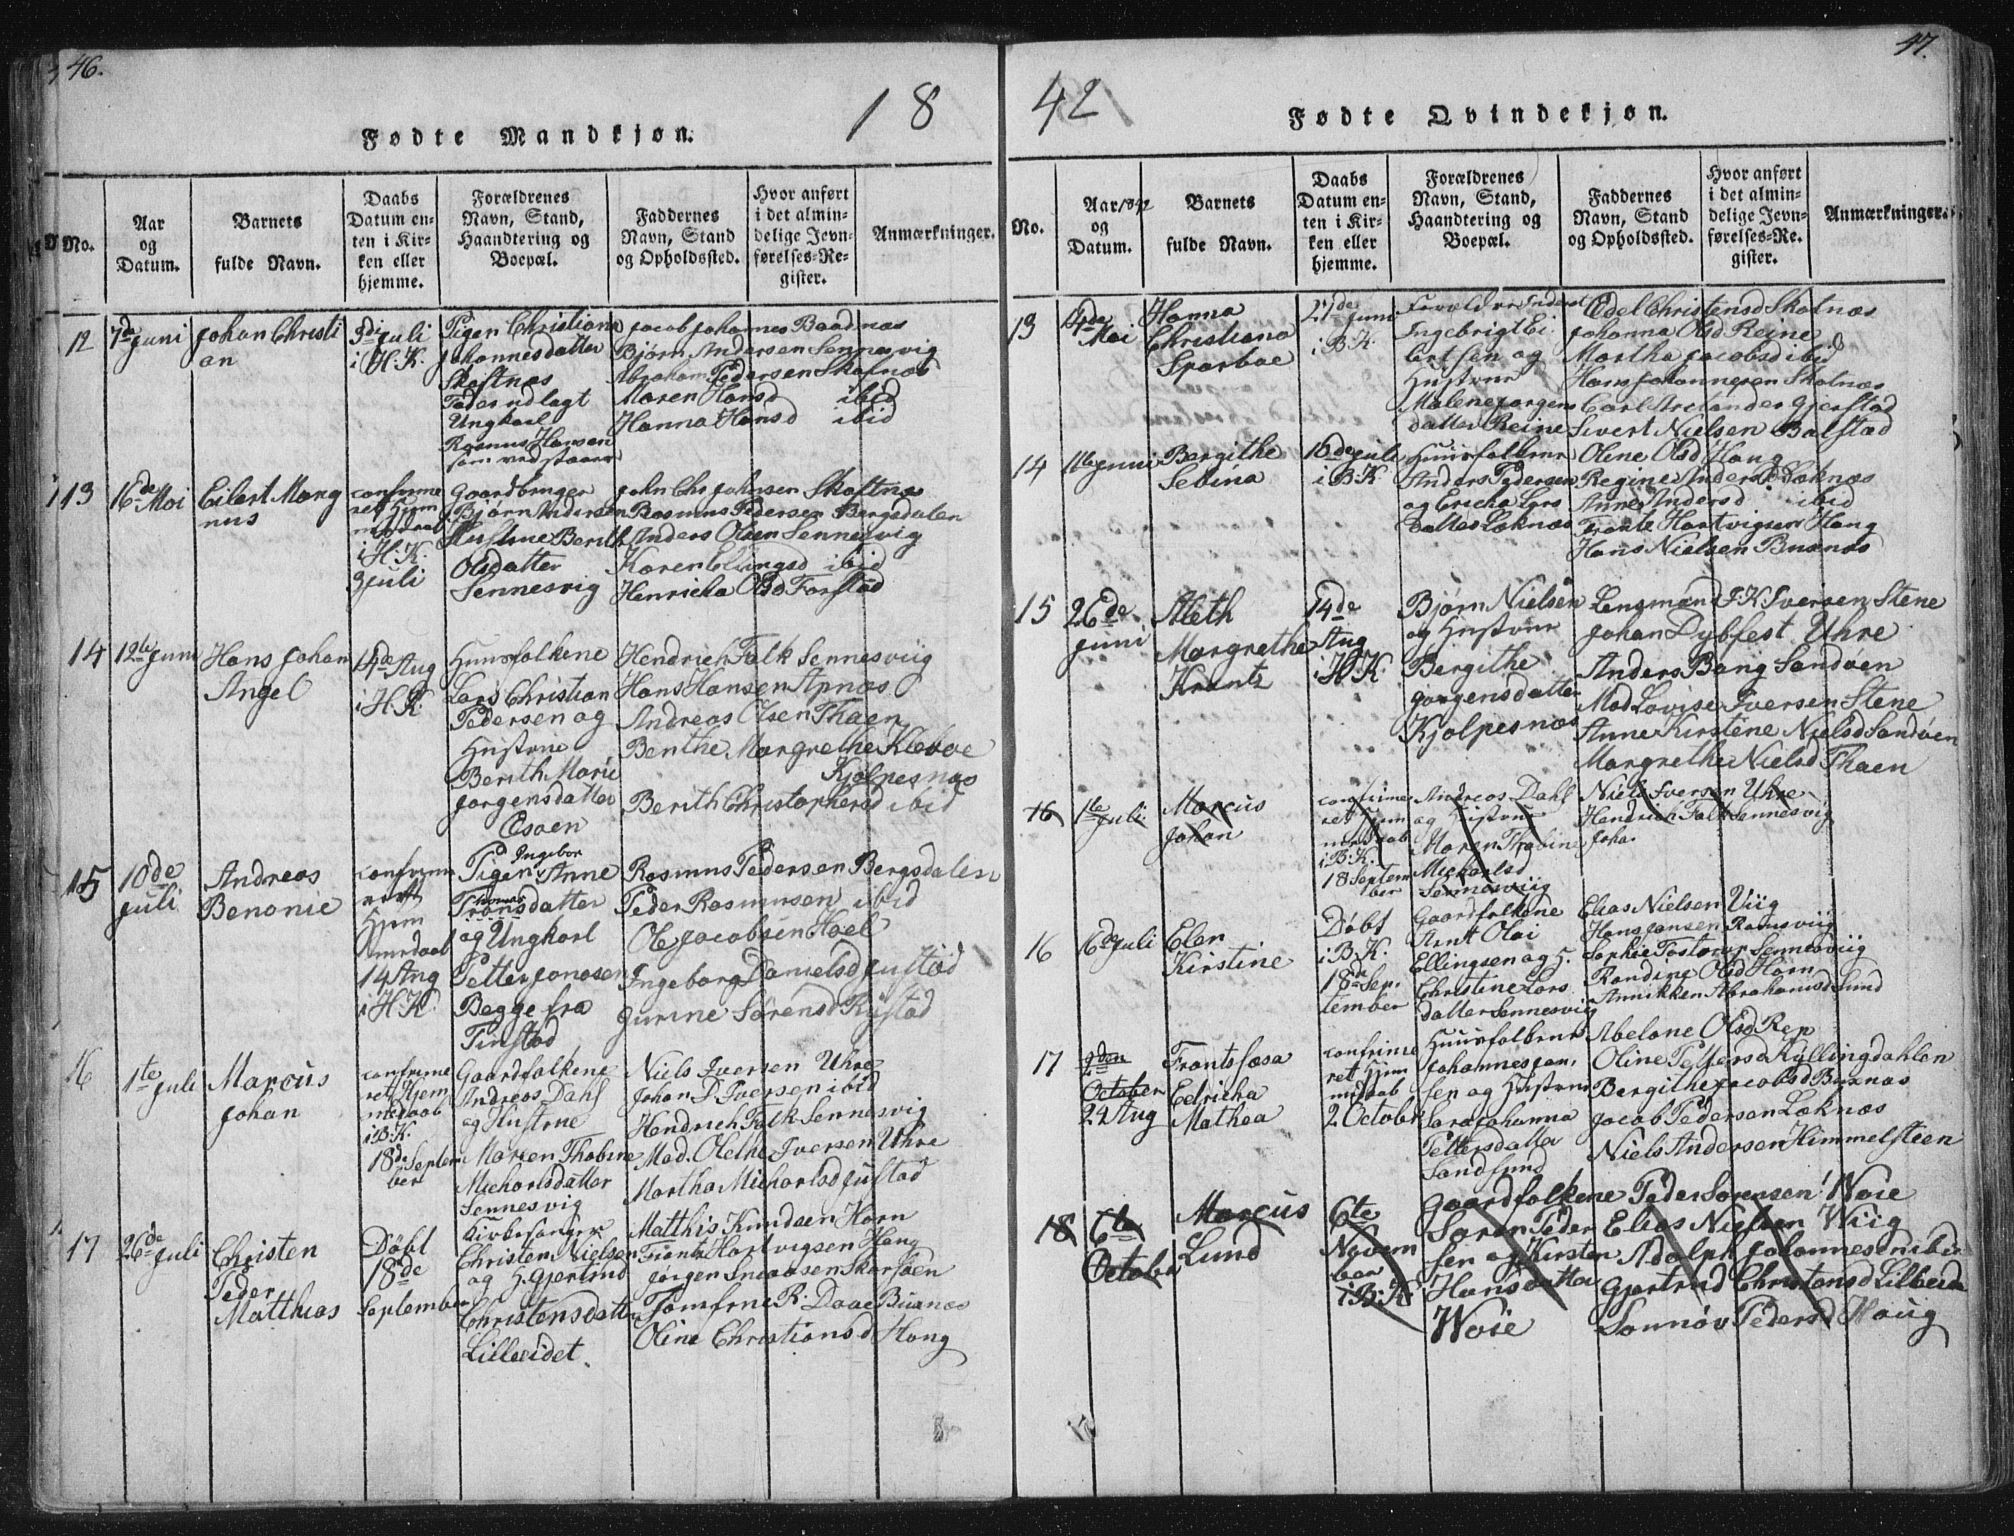 46.
18
Fødte Mandkjøn.
No.
Aar
og
Datum.
Barnets
fulde Navn.
Daabs
Datum en-
ten i Kir-
ken eller
hjemme.
Forældrenes
Navn, Stand,
Haandtering og
Boepæl.
Faddernes
Navn, Stand
og Opholdssted.
Hvor anført
i det almin-
delige Jevn-
førelses-Re-
gister.
Anmærkninger.
12
7de Juni
Johan Christi
an
3di Juli
i H.K.
Pigen Christiana
Johannesdatter
Skaftnæs
Fader udlagt
Ungkarl
Rasmus Hansen
som vedstaaer
Jacob Johannes Baadnæs
Bjørn Andersen Sennesvig
Abraham Pedersen Skafnæs
Maren Hansd ibid
Hanna Hansd ibid
13
16de Mai
Eilert Mang
nus
confirme
ret Hjem
medaab
i H.K.
3 Juli
Gaardbruger
Bjørn Andersen
Hustrue Berith
Olsdatter
Sennesvig
John Chr Johnsen Skaftnæs
Rasmus Pedersen Bergsdalen
Anders Olsen Sennesvig
Karen Ellingsd ibid
Henricha Olsd Farstad
14
12te Juni
Hans Johan
Angel
14de Aug
i H.K.
Huusfolkene
Lars Christian
Pedersen og
Hustrue
Berith Marie
Jørgensdatter
Esøen
Hendrich Falk Sennesviig
Hans Hansen Apnæs
Andreas Olsen Thaen
Benthe Margrethe Kleboe
Kjølpesnæs
Berith Christophersd ibid
15
10de
Juli
Andreas
Benonie
confirme
rett
Hjem
medaab
14 Aug
i H.K.
Pigen Ingebor Anne
Thomas
Transdatter
og Ungkarl
Petter Jonasen
Begge fra
Finstad
Rasmus Pedersen Bergsdalen
Peder Rasmusen ibid
Ole Jacobsen Hoel
Ingeborg Danielsd Justad
Gurine Sørensd Rystad
16
1te Juli
Marcus
Johan
confirme
ret Hjem
medaab
i B.K.
18de Septem
ber
Gaardfolkene
Andreas Dahl
og Hustrue
Maren Thobine
Michaelsdatter
Sennesvig
Niels Iversen Uhre
Johan D Iversen ibid
Hendrich Falk Sennesvig
Mad. Olethe Iversen Uhre
Martha Michaelsd Justad
17
26de Juli
Christen
Peder
Matthias
Døbt
18de
September
Kirkesanger
Christen Nielsen
og H. Gjertrud
Christensdatter
Lilleeidet.
Matthis Knudsen Horn
Frantz Hartvigsen Haug
Jørgen Knudsen Skarsøen
Jomfrue R. Daae Buxnæs
Oline Christiansd Haug
47.
42
Fødte Qvindekjøn.
No.
Aar 1842
og
Datum.
Barnets
fulde Navn.
Daabs
Datum en-
ten i Kir-
ken eller
hjemme.
Forældrenes
Navn, Stand,
Haandtering og
Boepæl.
Faddernes
Navn, Stand
og Opholdssted.
Hvor anført
i det almin-
delige Jevn-
førelses-Re-
gister.
Anmærkninger.
13
4de
Mai
Hanna
Christiana
Sparboe
27de
Juni
i B.K.
Ingebrigt Ei
lertsen og
Hustrue
Malene Jørgens
datter Reine
Edel Christensd Skotnæs
Johanna Olsd Reine
Martha Jacobsd ibid
Hans Johannesen Skotnæs
Carl Arctander Gjerstad
Sivert Nielsen Balstad
14
11te Juni
Bergithe
Sebina
10de Juli
i B.K.
Huusfolkene
Anders Pedersen
og Ericha Lars
datter Løknæs
Oline Olsd Haug
Regine Andersd Løknæs
Anne Andersd ibid
Frants Hartvigsen Haug
Hans Nielsen Buxnæs
15
26de
Juni
Aleth
Margrethe
Krantz
14de
Aug
i H.K.
Bjørn Nielsen
og Hustrue
Bergithe
Jørgensdatter
Kjølpesnæs
Lensmand J.K. Iversen Stene
Johan Dybfest Uhre
Anders Bang Sandøen
Mad Lovise Iversen Stene
Anne Kirstine Nielsd Sandøen
Margrethe Nielsd Thaen
16
1te
Juli
Marcus
Johan
confirme
ret Hjem
medaab
i B.K.
18 Septem
ber
Andreas Dahl
og Hustrue
Maren Thobine
Michaelsd
Sennesviig
Niels Iversen Uhre
Hendrich Falk Sennesvig
Joha.
16
16de Juli
Elen
Kirstine
Døbt
i B.K.
18de Sep.
tember
Gaardfolkene
Arnt Olai
Ellingsen og H.
Christine Lars
datter Sennesviig
Elias Nielsen Viig
Hans Jansen Ramsviig
Sophie Tostorp Sennesviig
Randine Olsd Horn
Annikken Abrahamsd Sund
17
2den
October
24 Aug
Frantsføsa
Edricka
Mathea
confirme
ret Hjem
medaab
2 October
Huusfolkene
Johannes Jan.
sen og Hustrue
Sara Johanna
Pettersdatter
Sandsund
Abelone Olsd Rep
Oline Pettersd Kyllingdahlen
Bergithe Jacobsd Buxnæs
Jacob Pedersen Løknæs
Niels Andersen Himmelsteen
18
6te
October
Marcus
Lund
6te
Novem
ber
i B.K.
Gaardfolkene
Søren Peder
sen og Kirsten
Hansdatter
Woie
Peder Sørensen Woie
Elias Nielsen Wiig
Adolph Johannesen ibid
Gjertrud Christensd Lilleeide
Sønnøv Pedersd Haug